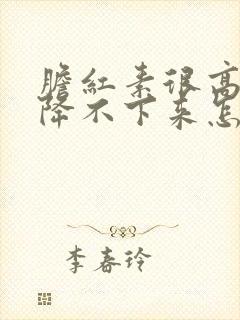 膽紅素很高
降不下来怎
李春玲